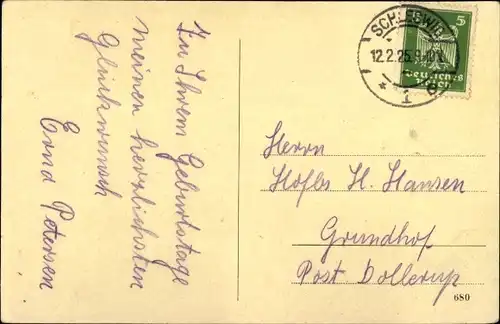 Zu Ihrem Geburtstage
meinen herzlichsten
Glückwunsch
Petersen
SCHLESWIG
12.2.25.9-10V.
* 1
5
Deutsches
Reich
Herrn
H. Hansen
Grundhof
Post Dollerup
680